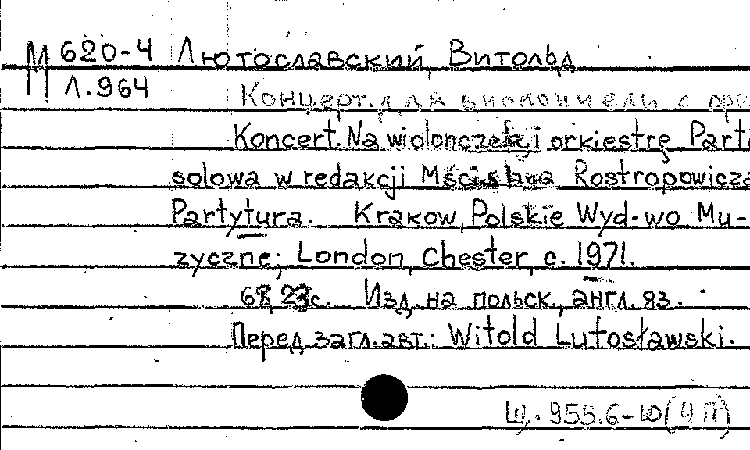 М 620-4 Лютославский, Витольд
Л.964
Концерт для виолончели с
Koncert. Na wiolonczelę i orkiestrę Part
solowa w redakcji Mścisława Rostropowicza
Partytura. Krakow, Polskie Wyd-wo Mu-
zyczne; London, Chester, c. 1971.
Изд. на польск., англ. яз.
Перед загл. авт.: Witold Lutosławski.
Щ. 955.6-ю (4 П)